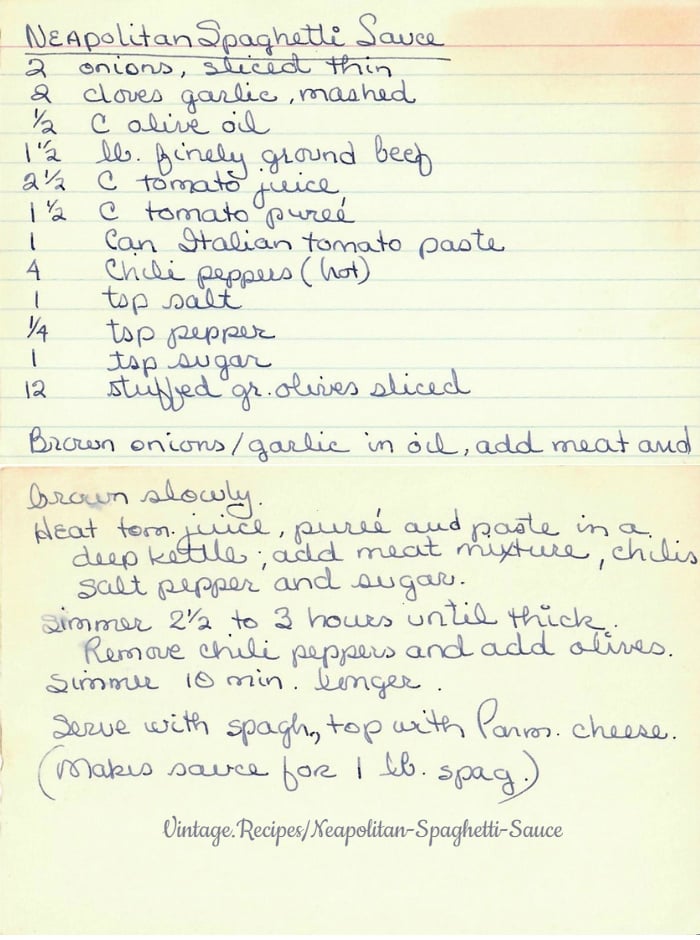 Neapolitan Spaghetti Sauce
2 onions, sliced thin
2 cloves garlic, mashed
½ C olive oil
1½ lb. finely ground beef
2½ C tomato juice
1½ C tomato pureé
1 Can Italian tomato paste
4 Chili peppers (hot)
1 tsp salt
¼ tsp pepper
1 tsp sugar
12 stuffed gr. olives sliced
Brown onions/garlic in oil, add meat and
brown slowly.
Heat tom. juice, pureé and paste in a
deep kettle; add meat mixture, chilis
salt pepper and sugar.
Simmer 2½ to 3 hours until thick.
Remove chili peppers and add olives.
Simmer 10 min. longer.
Serve with spagh., top with Parm. cheese.
(Makes sauce for 1 lb. spag.)
Vintage.Recipes/Neapolitan-Spaghetti-Sauce